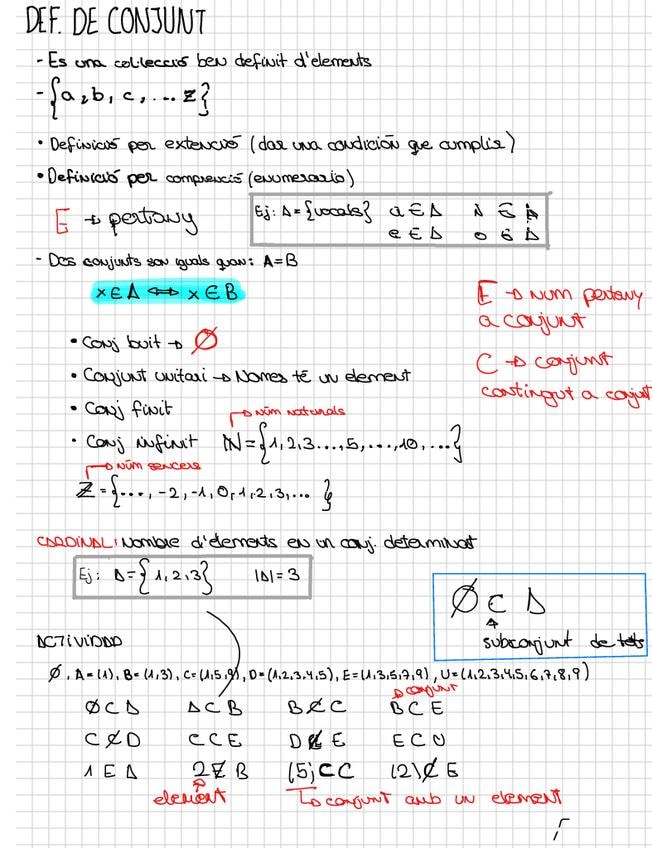 DEF. DE CONJUNT
- Es una col·lecció ben definit d'elements
- {a, b, c, ... z}
• Definició per extenció (dar una condición que cumplir)
• Definició per comprenció (enumerario)
E → pertany
Ej: A = {vocals} a ∈ A
e ∈ A
- Dos conjunts son iguals quan: A=B
x ∈ A ⟺ x ∈ B
E → Num pertany
a conjunt
C → conjunt
contingut a conjunt
• Conj buit → Ø
• Conjunt unitari → Nomes té un element
• Conj finit
→ núm naturals
• Conj infinit ℕ = {1, 2, 3 ..., 5, ..., 10, ...}
→ núm sencers
ℤ = {..., -2, -1, 0, 1, 2, 3, ... }
CARDINAL: Nombre d'elements en un conj. determinat
Ej: A = {1, 2, 3} |A| = 3
Ø ⊂ A
subconjunt de tots
ACTIVIDAD
Ø, A=(1), B=(1,3), C=(1,5,9), D=(1,2,3,4,5), E=(1,3,5,7,9), U=(1,2,3,4,5,6,7,8,9)
→ conjunt
Ø ⊂ A A ⊂ B B ⊄ C B ⊂ E
C ⊄ D C ⊂ E D ⊄ E E ⊂ U
1 ∈ A 2 ∉ B (5) ⊂ C (2) ⊄ E
element → conjunt amb un element